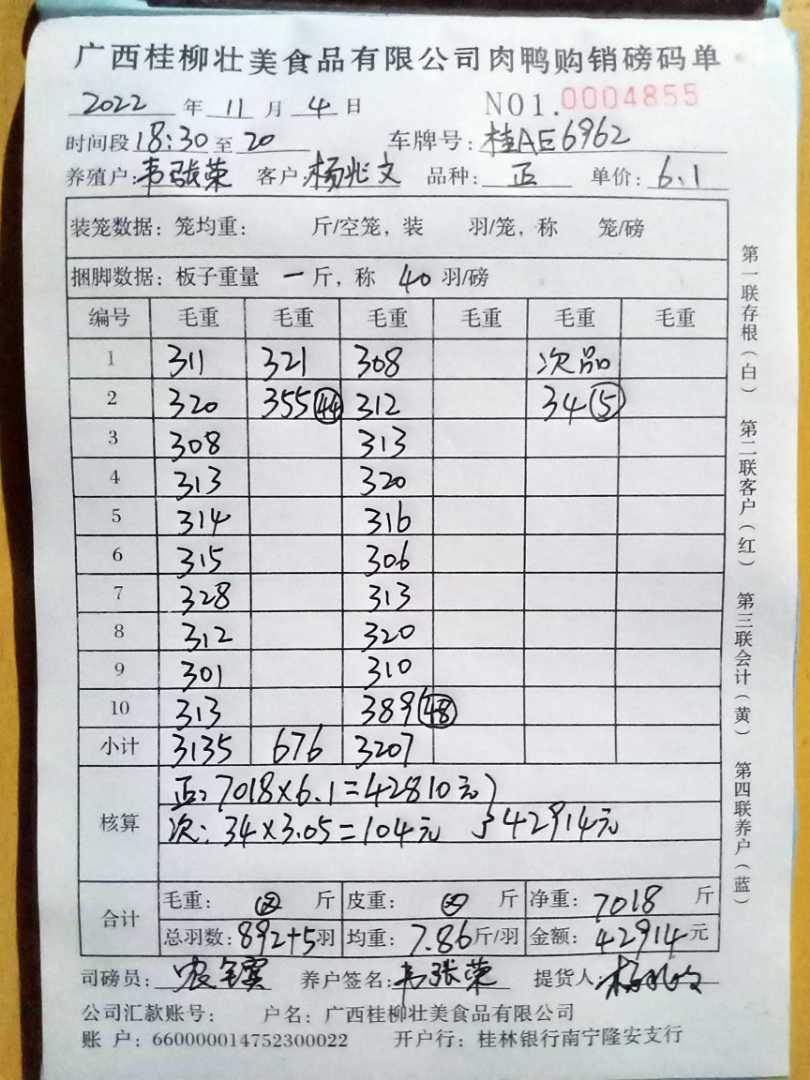 广西桂柳壮美食品有限公司肉鸭购销磅码单
2022 年 11 月 4 日 NO1.0004855
时间段 18:30 至 20 车牌号: 桂AE6962
养殖户: 韦张荣 客户: 杨兆文 品种: 正 单价: 6.1
装笼数据: 笼均重: 斤/空笼, 装 羽/笼, 称 笼/磅
捆脚数据: 板子重量 一 斤, 称 40 羽/磅
编号 毛重 毛重 毛重 毛重 毛重 毛重
1 311 321 308 次品
2 320 355 44 312 34 5
3 308 313
4 313 320
5 314 316
6 315 306
7 328 313
8 312 320
9 301 310
10 313 389 48
小计 3135 676 3207
核算
正: 7018×6.1=42810元
次: 34×3.05=104元 } 42914元
合计
毛重: 斤 皮重: 斤 净重: 7018 斤
总羽数: 892+5 羽 均重: 7.86 斤/羽 金额: 42914 元
司磅员: 养户签名: 韦张荣 提货人: 杨兆文
公司汇款账号: 户名: 广西桂柳壮美食品有限公司
账 户: 660000014752300022 开户行: 桂林银行南宁隆安支行
第一联存根(白) 第二联客户(红) 第三联会计(黄) 第四联养户(蓝)